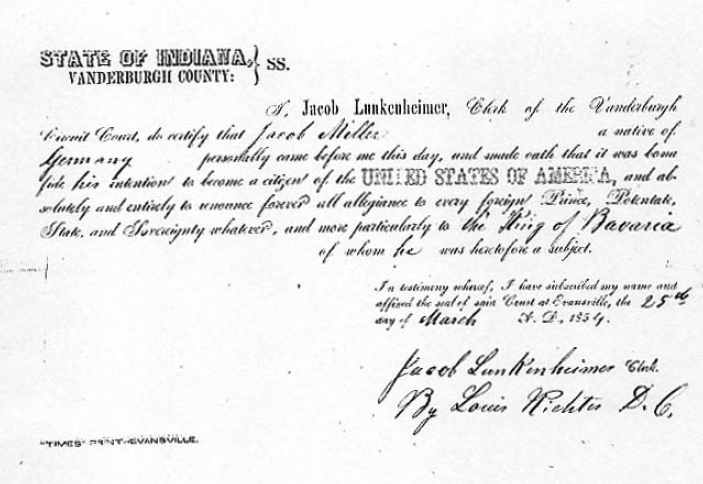 STATE OF INDIANA, } SS.
VANDERBURGH COUNTY:
I, Jacob Lunkenheimer, Clerk of the Vanderburgh
Circuit Court, do certify that Jacob Miller a native of
Germany personally came before me this day, and made oath that it was bona
fide his intention to become a citizen of the UNITED STATES OF AMERICA, and ab-
solutely and entirely to renounce forever all allegiance to every foreign Prince, Potentate,
State, and Sovereignty whatever, and more particularly to the King of Bavaria
of whom he was heretofore a subject.
In testimony whereof, I have subscribed my name and
affixed the seal of said Court at Evansville, the 25th
day of March A. D., 1854.
Jacob Lunkenheimer Clerk.
By Louis Richter D. C.
"TIMES" PRINT-EVANSVILLE.